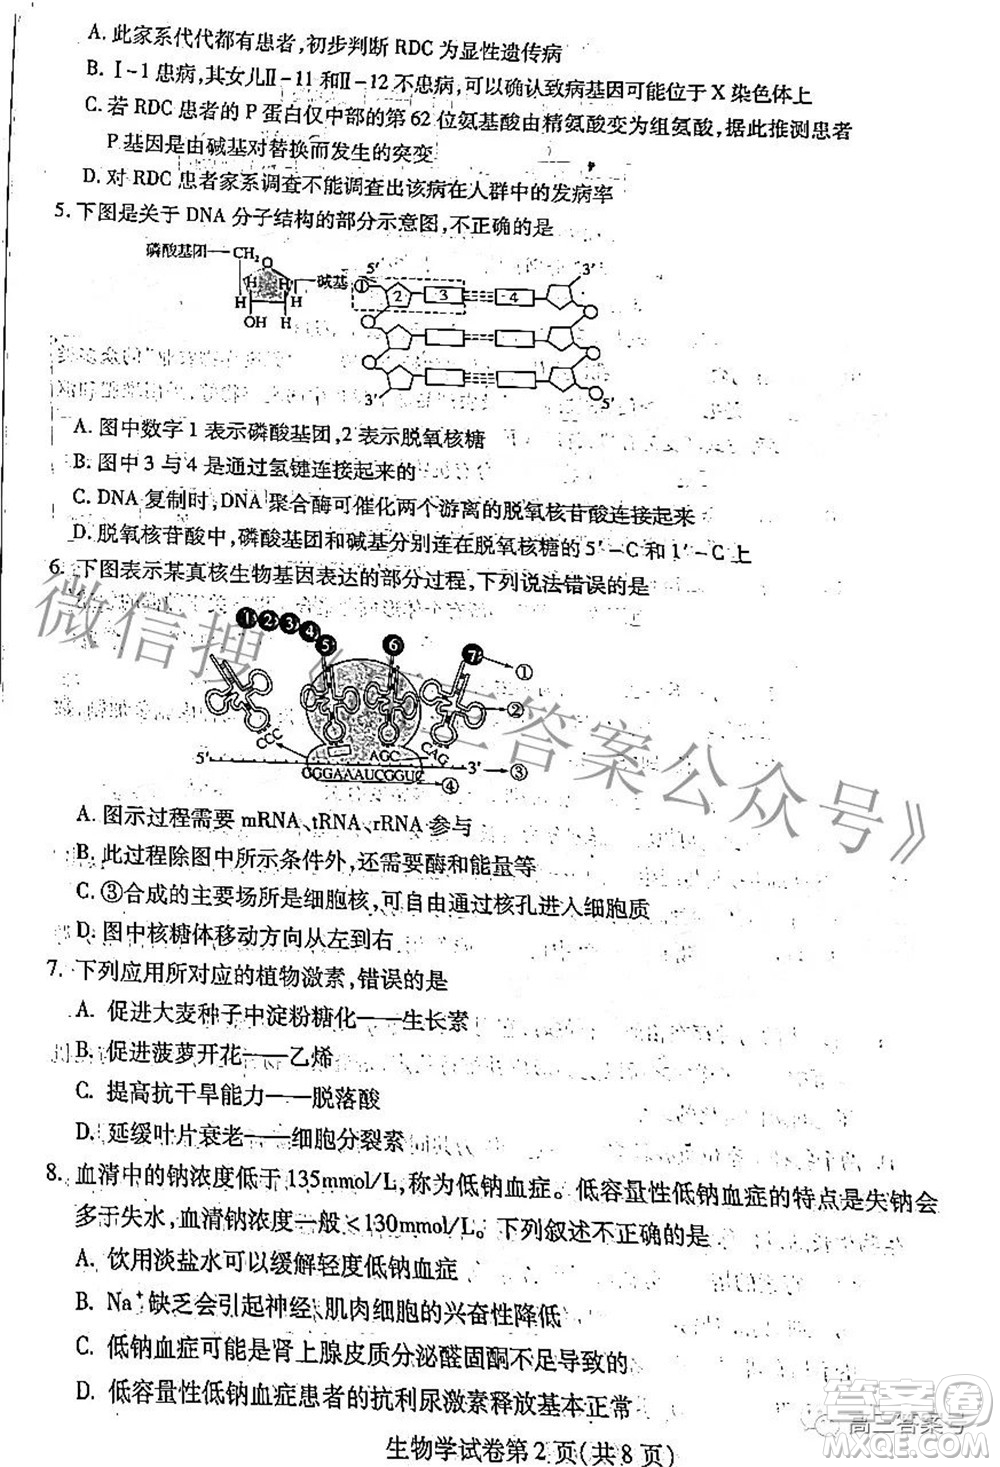 A. 此家系代代都有患者,初步判断 RDC 为显性遗传病
B. Ⅰ-1 患病,其女儿Ⅱ-11 和Ⅱ-12 不患病,可以确认致病基因可能位于 X 染色体上
C. 若 RDC 患者的 P 蛋白仅中部的第 62 位氨基酸由精氨酸变为组氨酸,据此推测患者
P 基因是由碱基对替换而发生的突变
D. 对 RDC 患者家系调查不能调查出该病在人群中的发病率
5. 下图是关于 DNA 分子结构的部分示意图,不正确的是
磷酸基团 CH₂ O 碱基 H H H H OH H
5′ 1 2 3 4 3′
3′ 5′
A. 图中数字 1 表示磷酸基团,2 表示脱氧核糖
B. 图中 3 与 4 是通过氢键连接起来的
C. DNA 复制时,DNA 聚合酶可催化两个游离的脱氧核苷酸连接起来
D. 脱氧核苷酸中,磷酸基团和碱基分别连在脱氧核糖的 5′-C 和 1′-C 上
6. 下图表示某真核生物基因表达的部分过程,下列说法错误的是
1 2 3 4 5 6 7 ①
②
CCC AGC CAG
5′ 3′ ③
GGGAAAUCGGUC ④
A. 图示过程需要 mRNA、tRNA、rRNA 参与
B. 此过程除图中所示条件外,还需要酶和能量等
C. ③合成的主要场所是细胞核,可自由通过核孔进入细胞质
D. 图中核糖体移动方向从左到右
7. 下列应用所对应的植物激素,错误的是
A. 促进大麦种子中淀粉糖化——生长素
B. 促进菠萝开花——乙烯
C. 提高抗干旱能力——脱落酸
D. 延缓叶片衰老——细胞分裂素
8. 血清中的钠浓度低于 135mmol/L,称为低钠血症。低容量性低钠血症的特点是失钠会
多于失水,血清钠浓度一般<130mmol/L。下列叙述不正确的是
A. 饮用淡盐水可以缓解轻度低钠血症
B. Na⁺缺乏会引起神经、肌肉细胞的兴奋性降低
C. 低钠血症可能是肾上腺皮质分泌醛固酮不足导致的
D. 低容量性低钠血症患者的抗利尿激素释放基本正常
生物学试卷第 2 页(共 8 页)
微信搜《高三答案公众号》
高三答案号
答案圈
MXQE.COM